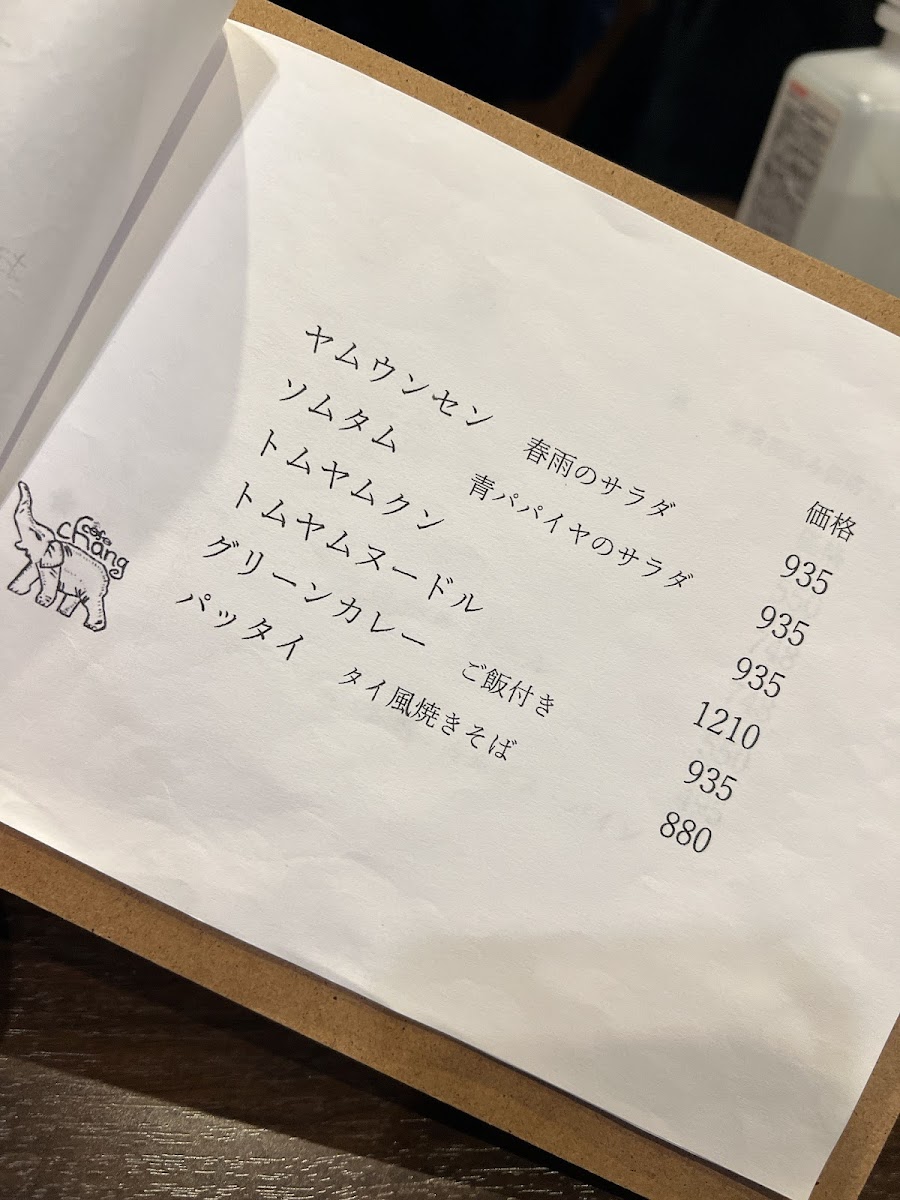 価格
ヤムウンセン 春雨のサラダ 935
ソムタム 青パパイヤのサラダ 935
トムヤムクン 935
トムヤムヌードル 1210
グリーンカレー ご飯付き 935
パッタイ タイ風焼きそば 880
cafe
chang